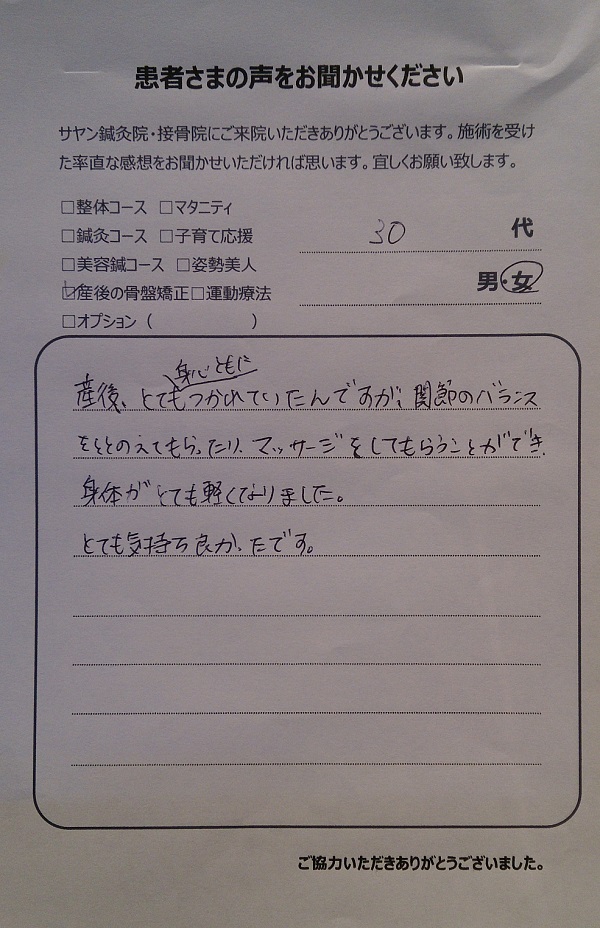 患者さまの声をお聞かせください
サヤン鍼灸院・接骨院にご来院いただきありがとうございます。施術を受け
た率直な感想をお聞かせいただければ思います。宜しくお願い致します。
□整体コース □マタニティ
□鍼灸コース □子育て応援
30 代
□美容鍼コース □姿勢美人
男・女
☑産後の骨盤矯正□運動療法
□オプション（ ）
身心ともに
産後、とてもつかれていたんですが、関節のバランス
をととのえてもらったり、マッサージをしてもらうことができ、
身体がとても軽くなりました。
とても気持ち良かったです。
ご協力いただきありがとうございました。